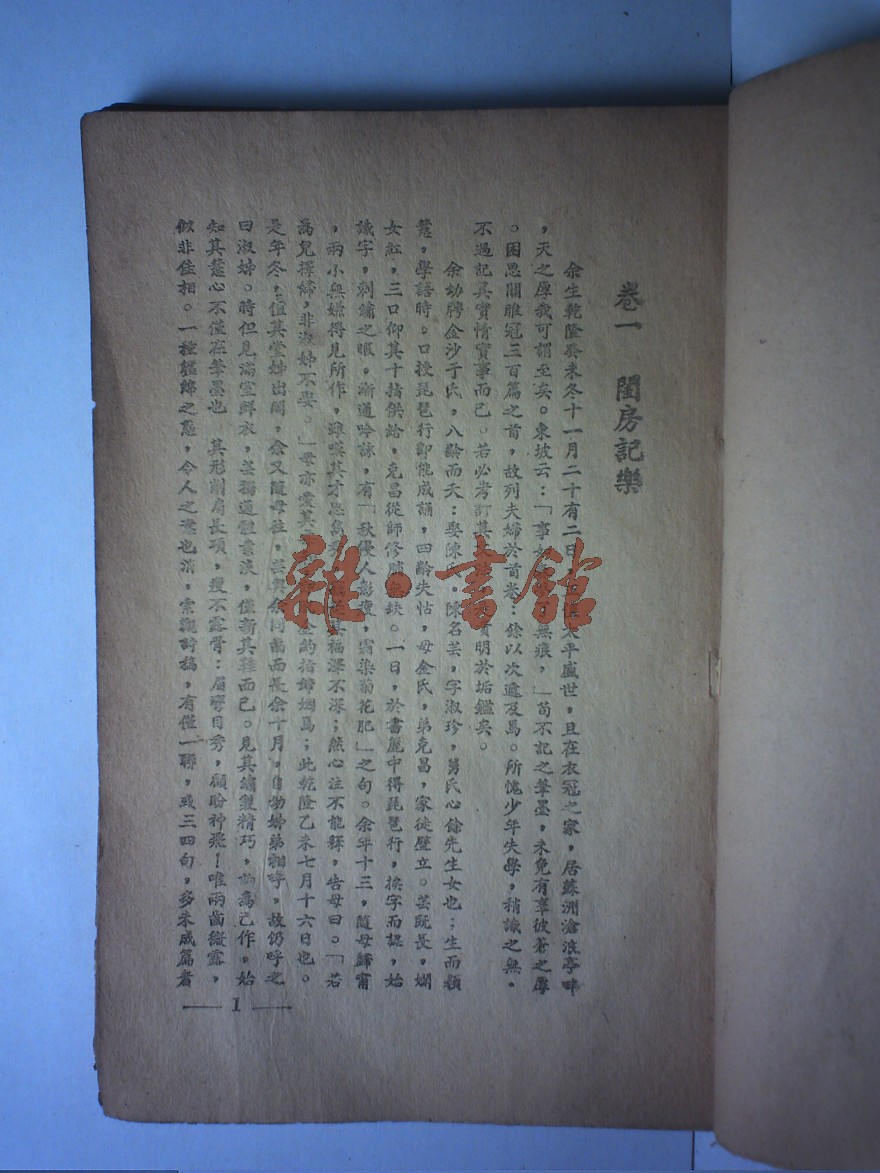 卷一　閨房記樂
余生乾隆癸未冬十一月二十有二日，太平盛世，且在衣冠之家，居蘇洲滄浪亭畔
，天之厚我可謂至矣。東坡云：「事如無痕，」苟不記之筆墨，未免有辜彼蒼之厚
。因思關雎冠三百篇之首，故列夫婦於首卷：餘以次遞及焉。所愧少年失學，稍識之無，
不過記其實情實事而已。若必考訂其責明於垢鑑矣。
余幼聘金沙于氏，八齡而夭：娶陳氏。陳名芸，字淑珍，舅氏心餘先生女也；生而穎
慧，學語時。口授琵琶行卽能成誦，四齡失怙，母金氏，弟克昌，家徒壁立。芸旣長，嫻
女紅，三口仰其十指供給，克昌從師修脯無缺。一日，於書簏中得琵琶行，挨字而認，始
識字，刺繡之暇，漸通吟詠，有「秋侵人影瘦，霜染菊花肥」之句。余年十三，隨母歸甯
，兩小無嫌得見所作，雖嘆其才思雋其福澤不深；然心注不能釋，告母曰。「若
爲兒擇婦，非淑姊不娶。」母亦愛其金約指締姻焉；此乾隆乙未七月十六日也。
是年冬，值其堂姊出閣，余又隨母往，芸與余同齒而長余十月，自幼姊弟相呼，故仍呼之
曰淑姊。時但見滿室鮮衣，芸獨通體素淡，僅新其鞋而已。見其繡製精巧，詢爲己作，始
知其慧心不僅在筆墨也　其形削肩長項，瘦不露骨：眉彎目秀，顧盼神飛！唯兩齒微露，
似非佳相。一種纏綿之態，令人之意也消，索觀詩稿，有僅一聯，或三四句，多未成篇者
1
雜·書館